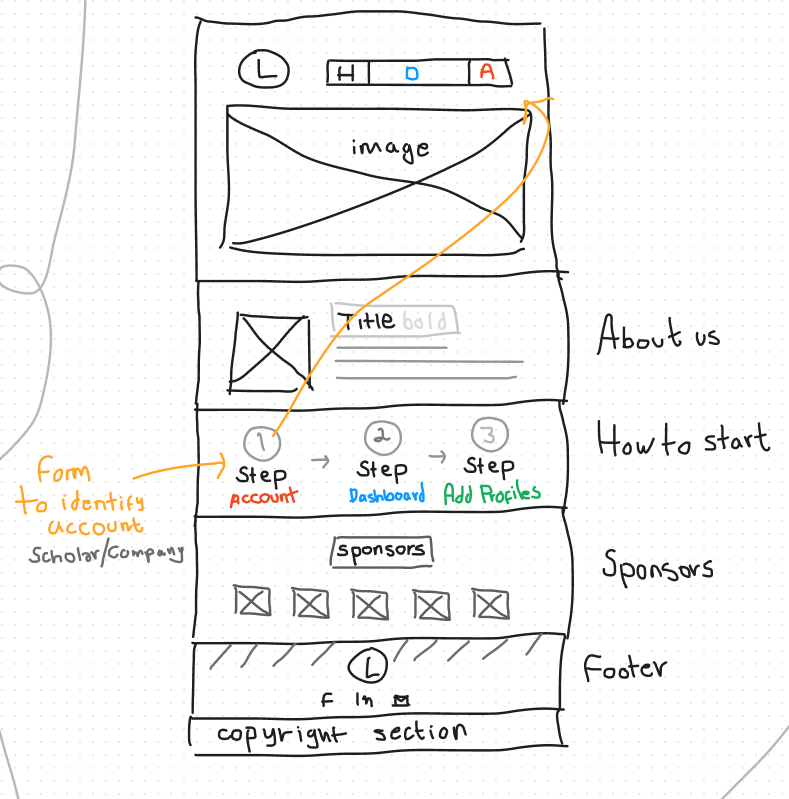 L
H D A
image
Title bold
About us
1 2 3
Step → Step → Step
Account Dashboard Add Profiles
How to start
Form
to identify
account
Scholar/Company
sponsors
Sponsors
L
F In
Footer
copyright section